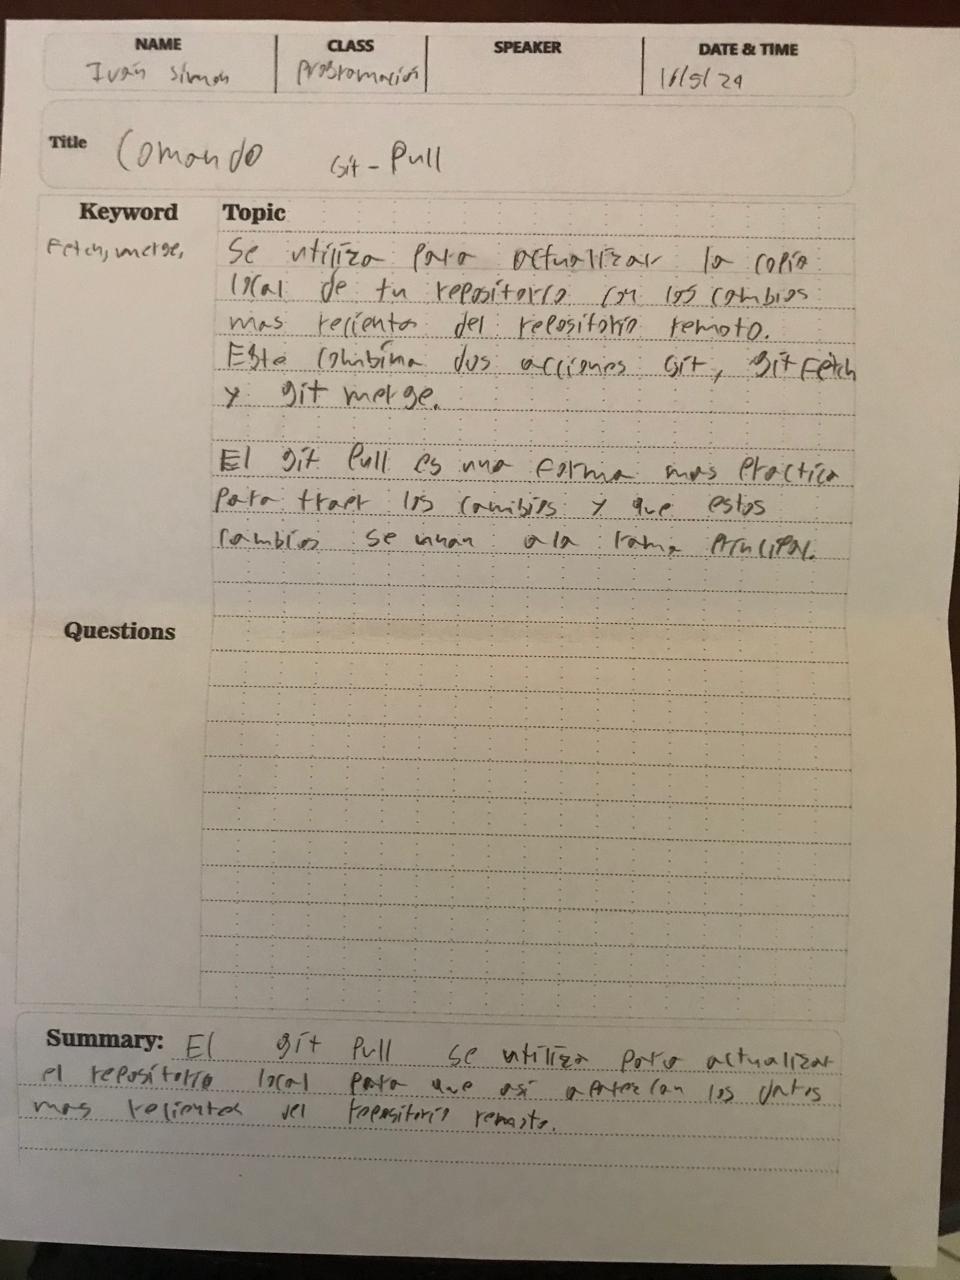 NAME CLASS SPEAKER DATE & TIME
Iván Simon Programación 16/5/24
Title Comando Git - Pull
Keyword Topic
Fetch, merge, Se utiliza para actualizar la copia
local de tu repositorio con los cambios
mas recientes del repositorio remoto.
Este combina dos acciones Git, git Fetch
y git merge.
El git Pull es una forma mas practica
para traer los cambios y que estos
cambios se unan a la rama principal.
Questions
Summary: El git Pull se utiliza para actualizar
el repositorio local para que asi aparezcan los datos
mas recientes del repositorio remoto.